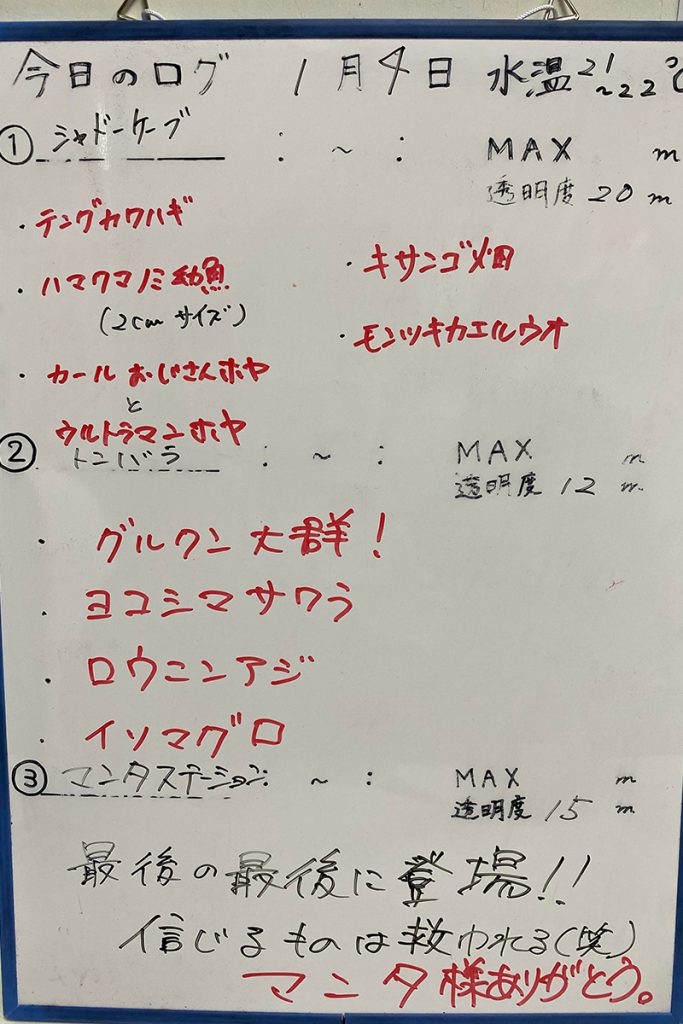 今日のログ 1月4日 水温21~22℃
① シャドーケーブ : ~ : MAX m
透明度 20 m
・テングカワハギ
・キサンゴ畑
・ハマクマノミ幼魚
(2cmサイズ)
・モンツキカエルウオ
・カールおじさんホヤ
と
ウルトラマンホヤ
② トンバラ : ~ : MAX m
透明度 12 m
・グルクン大群!
・ヨコシマサワラ
・ロウニンアジ
・イソマグロ
③ マンタステーション: ~ : MAX m
透明度 15 m
最後の最後に登場!!
信じるものは救われる(笑)
マンタ様ありがとう。